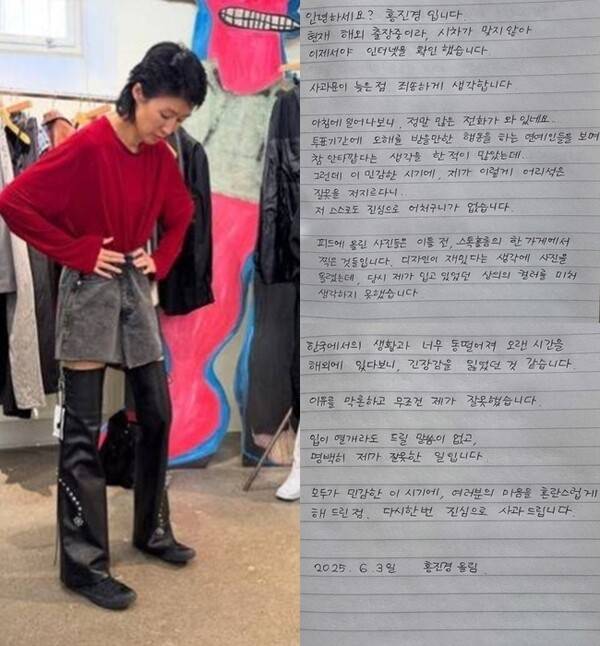 안녕하세요? 홍진경 입니다.
현재 해외 출장중이라, 시차가 맞지 않아
이제서야 인터넷을 확인 했습니다
사과문이 늦은 점 죄송하게 생각합니다
아침에 일어나보니, 정말 많은 전화가 와 있네요.
투표기간에 오해를 받을만한 행동을 하는 연예인들을 보며
참 안타깝다는 생각을 한 적이 많았는데.
그런데 이 민감한 시기에, 제가 이렇게 어리석은
잘못을 저지르다니.
저 스스로도 진심으로 어처구니가 없습니다.
피드에 올린 사진들은 이틀 전, 스톡홀름의 한 가게에서
찍은 것들입니다. 디자인이 재밌다는 생각에 사진을
올렸는데, 당시 제가 입고 있었던 상의의 컬러를 미처
생각하지 못했습니다.
한국에서의 생활과 너무 동떨어져 오랜 시간을
해외에 있다보니, 긴장감을 잃었던 것 같습니다.
이유를 막론하고 무조건 제가 잘못했습니다.
입이 열개라도 드릴 말씀이 없고,
명백히 제가 잘못한 일입니다
모두가 민감한 이 시기에, 여러분의 마음을 혼란스럽게
해 드린 점. 다시한번 진심으로 사과드립니다.
2025. 6. 3일 홍진경 올림.